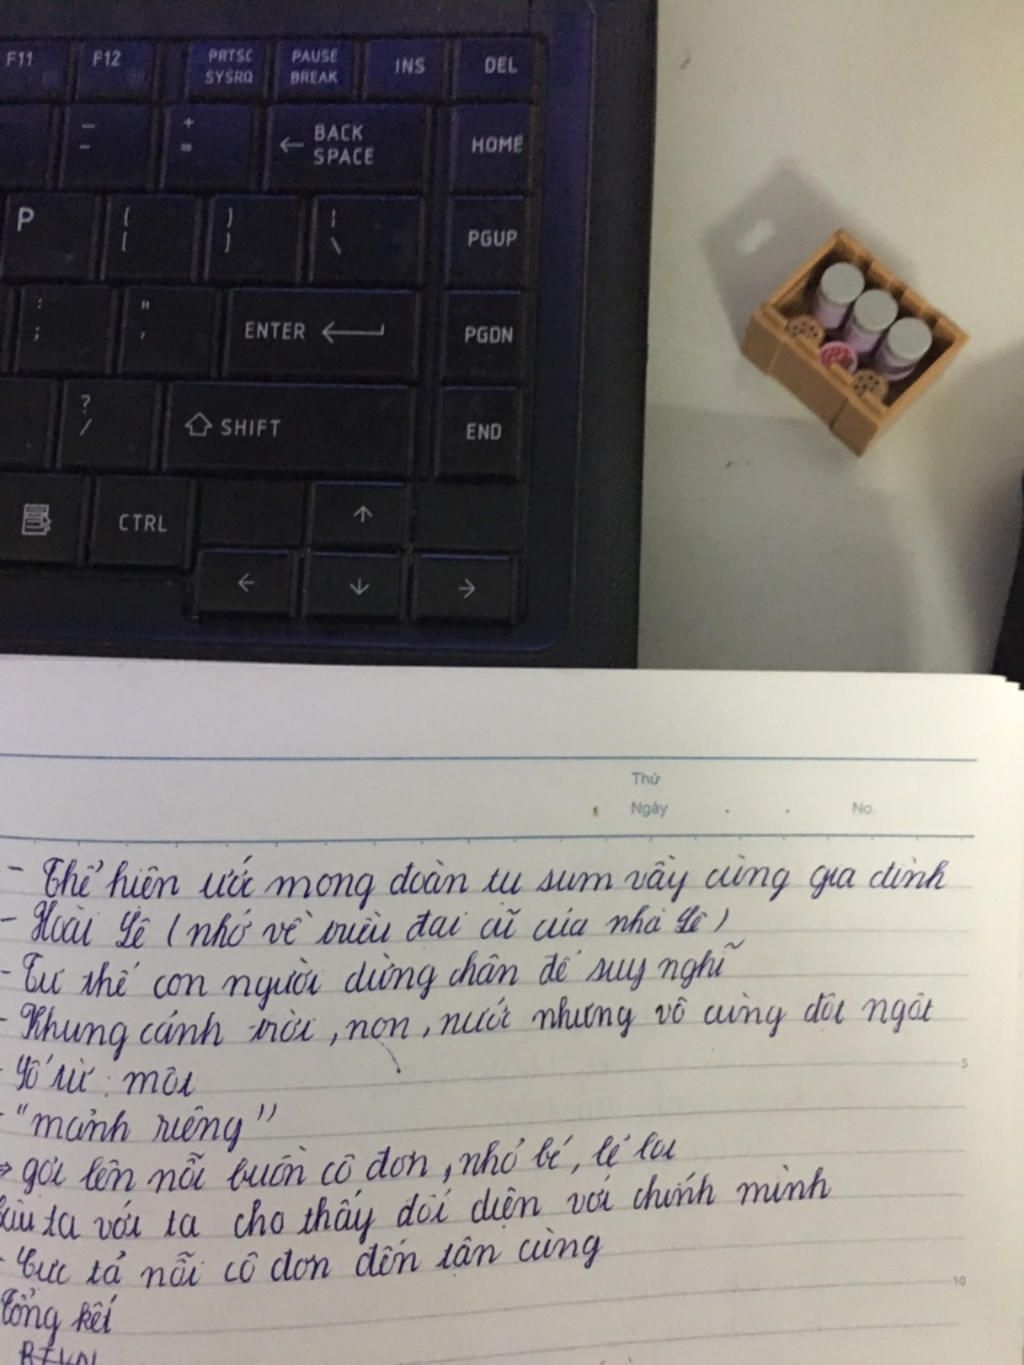 F11 F12 PRTSC SYSRQ PAUSE BREAK INS DEL
— - + = ← BACK SPACE HOME
P { [ } ] | \ PGUP
: ; " ' ENTER PGDN
? / SHIFT END
CTRL ↑
← ↓ →
Thứ
Ngày No.
- Thể hiện ước mong đoàn tụ sum vầy cùng gia đình
- Hoài Lê (nhớ về triều đại cũ của nhà Lê)
- Tư thế con người dừng chân để suy nghĩ
- Khung cảnh trời, non, nước nhưng vô cùng đột ngột
- Số từ: một
- "mảnh riêng"
→ gợi lên nỗi buồn cô đơn, nhỏ bé, lẻ loi
Câu ta với ta cho thấy đối diện với chính mình
- Cực tả nỗi cô đơn đến tận cùng
Tổng kết
5
10